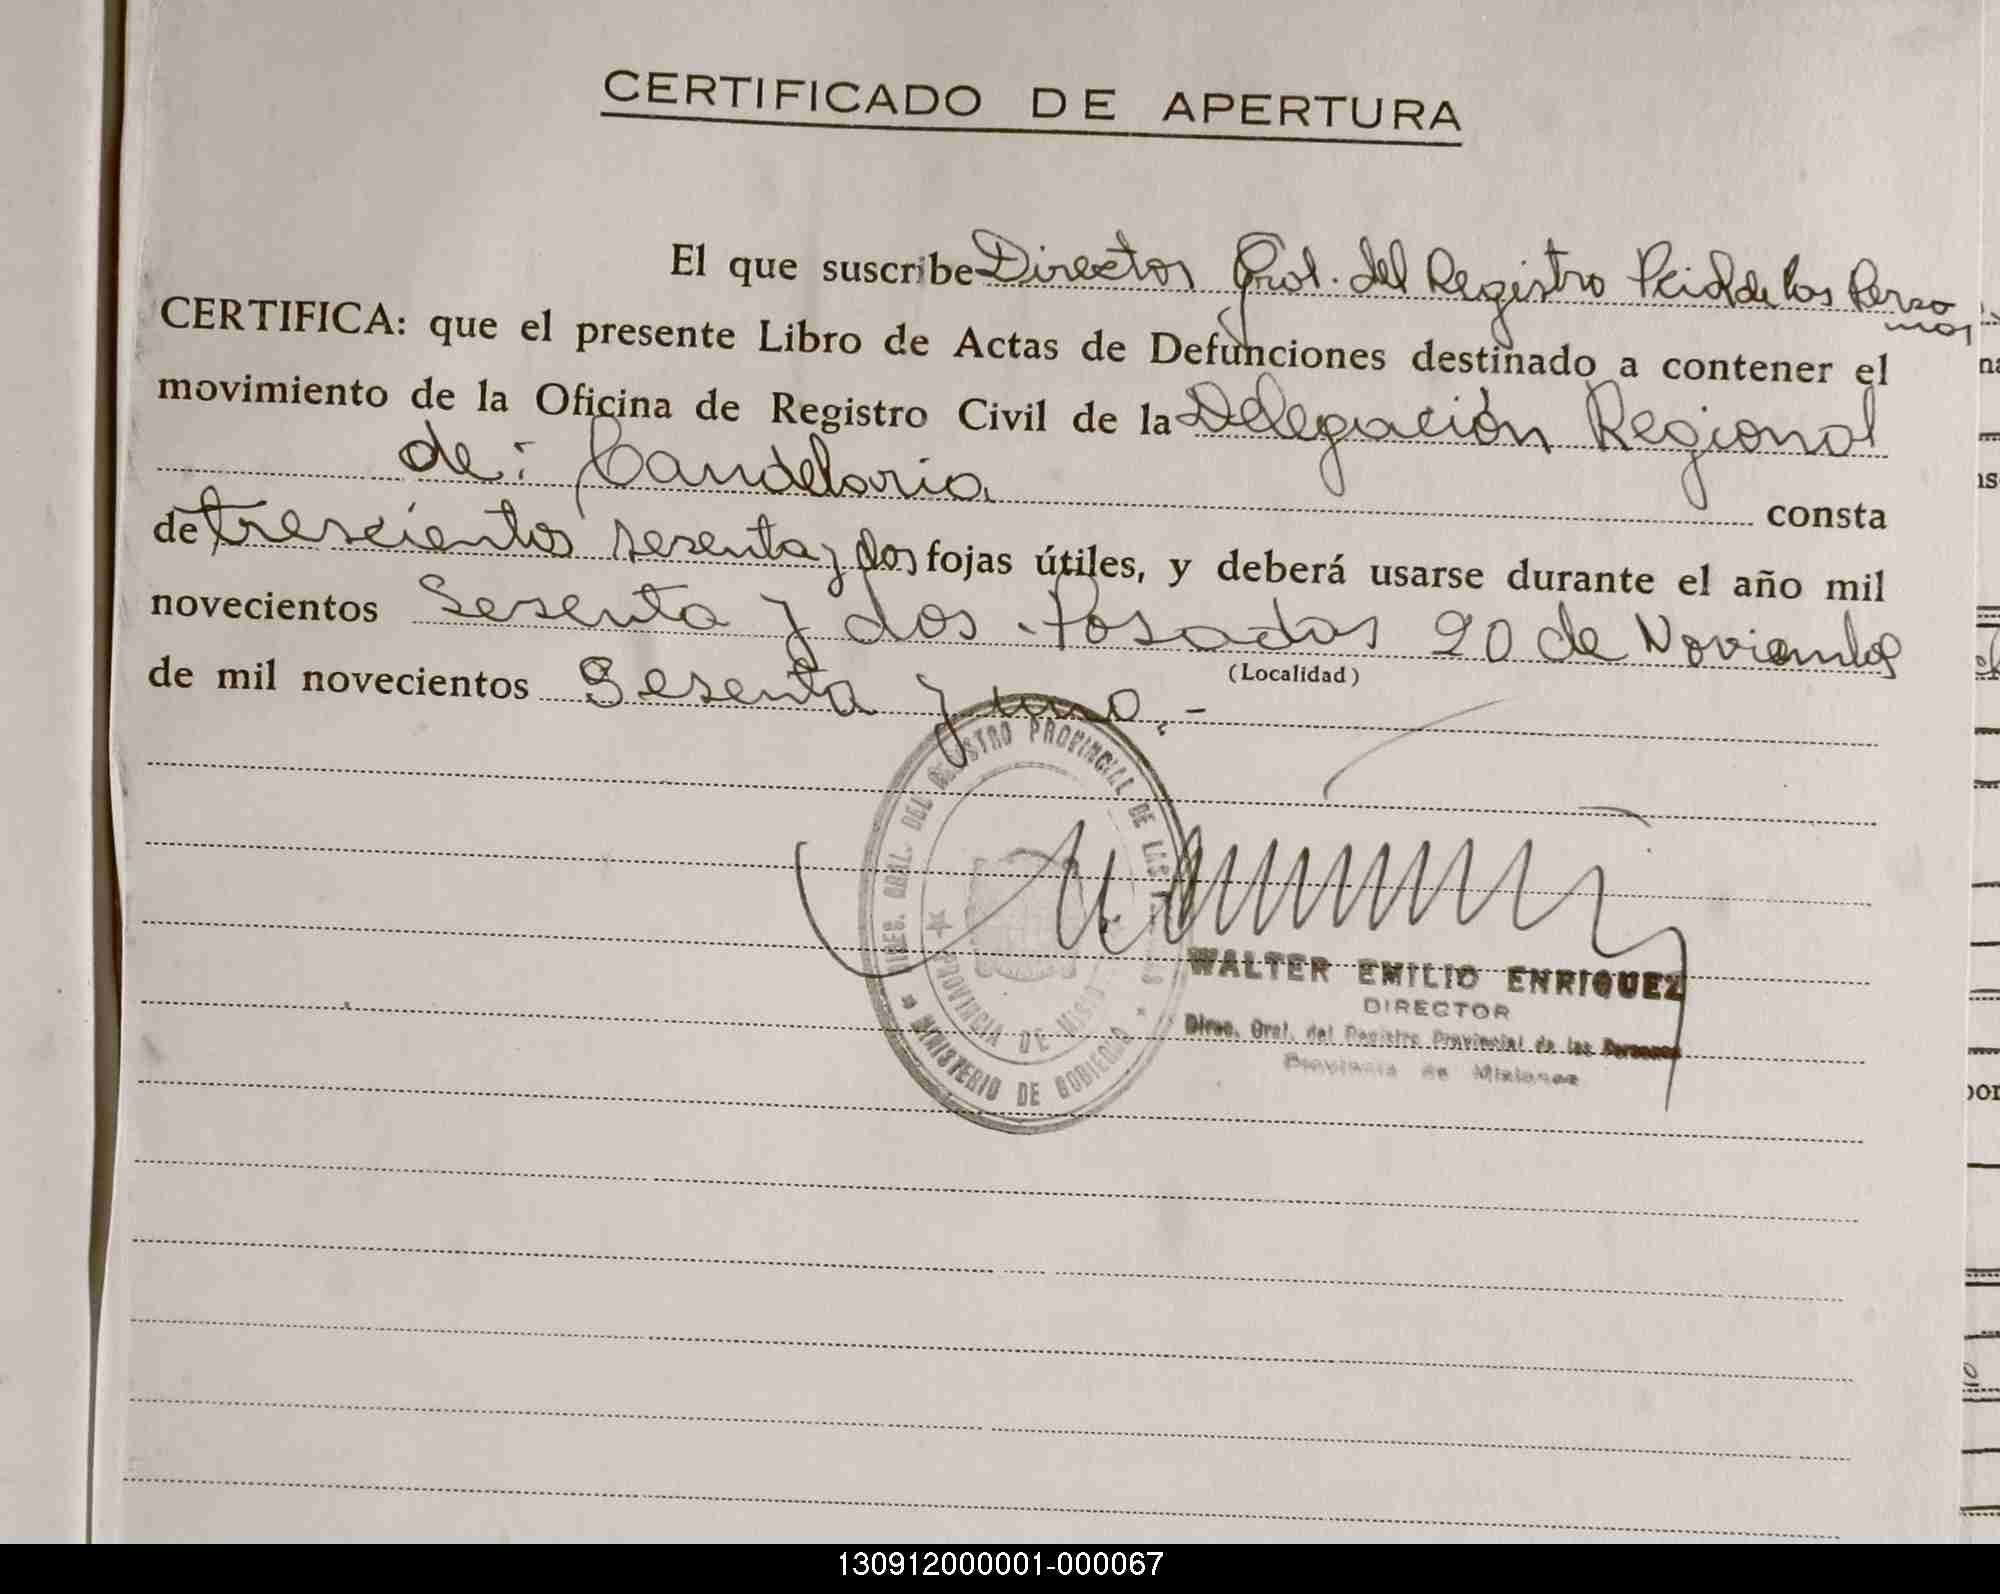 CERTIFICADO DE APERTURA
El que suscribe Director Gral. del Registro Pcial de las Perso
nas
CERTIFICA: que el presente Libro de Actas de Defunciones destinado a contener el
movimiento de la Oficina de Registro Civil de la Delegación Regional
de: Candelaria. consta
de trescientos sesenta y dos fojas útiles, y deberá usarse durante el año mil
novecientos Sesenta y dos. Posadas 20 de Noviembre
(Localidad)
de mil novecientos Sesenta y uno.-
DIREC. GRAL. DEL REGISTRO PROVINCIAL DE LAS
PROVINCIA DE
MINISTERIO DE GOBIERNO
WALTER EMILIO ENRIQUEZ
DIRECTOR
Direc. Gral. del Registro Provincial de las Personas
Provincia de Misiones
130912000001-000067